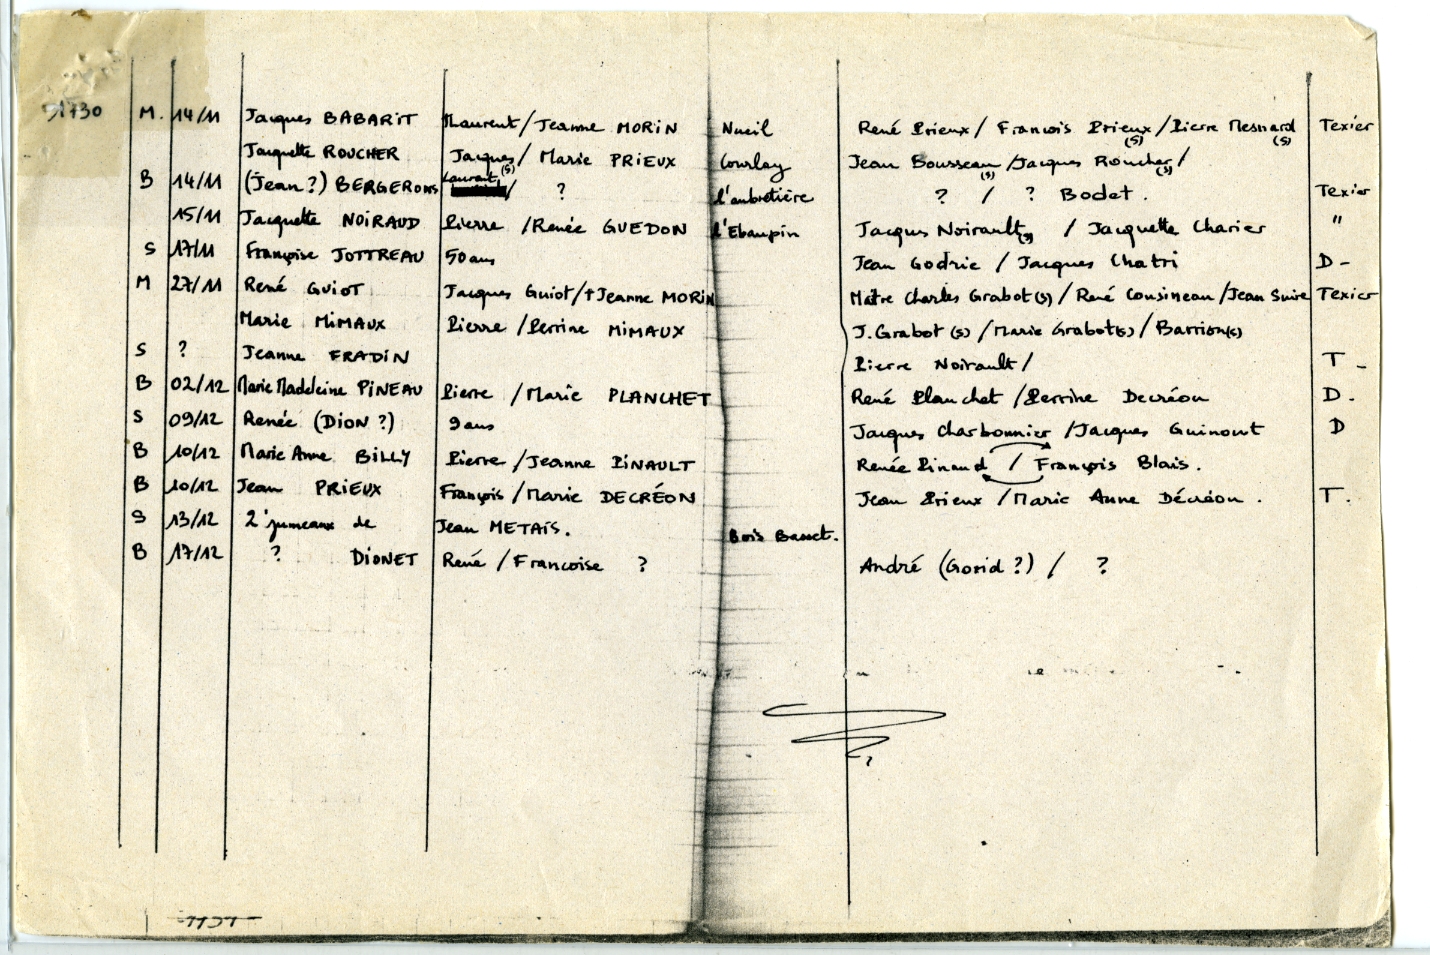 1730 M. 14/11 Jacques BABARIT Laurent / Jeanne MORIN Nueil René Prieux / François Prieux (S) / Pierre Mesnard (S) Texier
Jacquette ROUCHER Jacques (S) / Marie PRIEUX Courlay Jean Bousseau (S) / Jacques Roucher (S) /
B 14/11 (Jean ?) BERGERONS Laurent / ? l'aubretière ? / ? Bodet. Texier
15/11 Jacquette NOIRAUD Pierre / Renée GUEDON l'Ebaupin Jacques Noirault (S) / Jacquette Charier "
S 17/11 Françoise JOTTREAU 50 ans Jean Godrie / Jacques Chatri D -
M 27/11 René GUIOT Jacques Guiot / † Jeanne MORIN Maître Charles Grabot (S) / René Cousineau / Jean Suire Texier
Marie MIMAUX Pierre / Perrine MIMAUX J. Grabot (S) / Marie Grabot (S) / Barrion (S)
S ? Jeanne FRADIN Pierre Noirault / T -
B 02/12 Marie Madeleine PINEAU Pierre / Marie PLANCHET René Planchet / Perrine Decréon D.
S 09/12 Renée (DION ?) 9 ans Jacques Charbonnier / Jacques Guinout D
B 10/12 Marie Anne BILLY Pierre / Jeanne PINAULT Renée Pinaud / François Blais.
B 10/12 Jean PRIEUX François / Marie DECRÉON Jean Prieux / Marie Anne Décréon. T.
S 13/12 2 jumeaux de Jean METAIS. Bois Basset.
B 17/12 ? DIONET René / Francoise ? André (Gorid ?) / ?